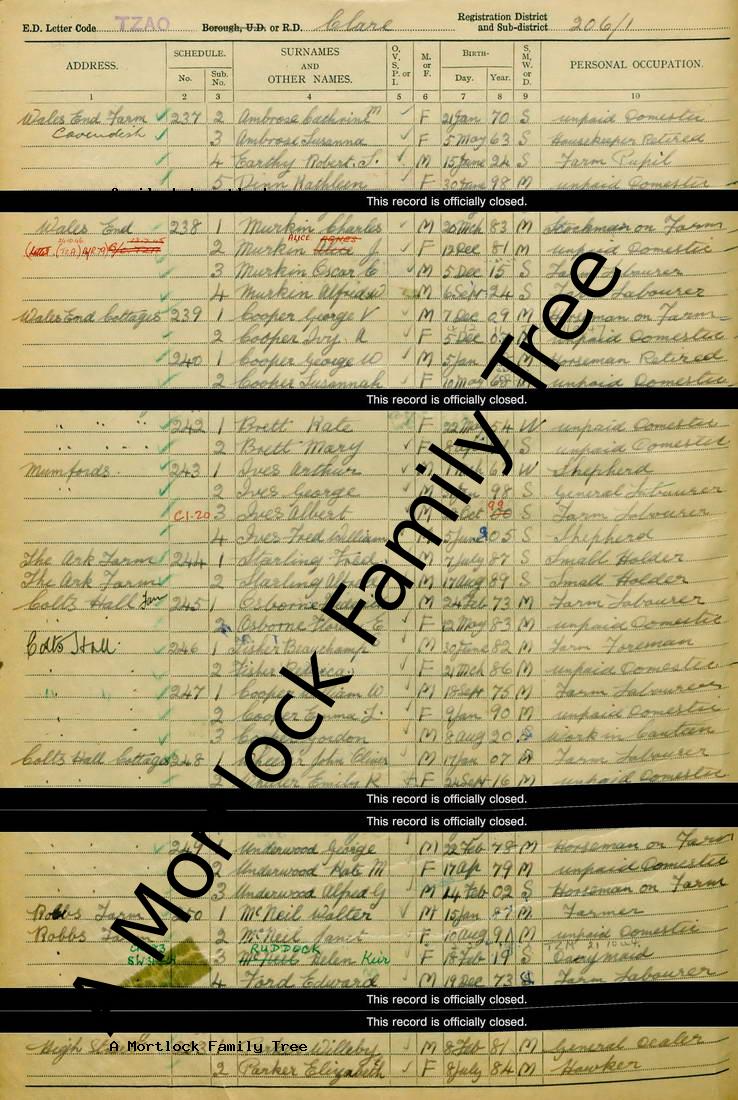 E.D. Letter Code TZAO Borough, U.D. or R.D. Clare Registration District and Sub-district 206/1
ADDRESS. SCHEDULE. No. Sub. No. SURNAMES AND OTHER NAMES. O, V, S, P. or I. M. or F. BIRTH- Day. Year. S, M, W. or D. PERSONAL OCCUPATION.
1 2 3 4 5 6 7 8 9 10
Wales End Farm 237 2 Ambrose F 21 Jan 70 S unpaid Domestic
Cavendish
3 Ambrose Susanna F 5 May 63 S Housekeeper Retired
4 Earthy Robert S. M 15 June 24 S Farm Pupil
5 Dinn Kathleen F 30 June 98 M unpaid Domestic
This record is officially closed.
Wales End 238 1 Murkin Charles M 20 Mch 83 M Stockman on Farm
ALICE AGNES
2 Murkin Alice J. F 12 Dec 81 M unpaid Domestic
3 Murkin Oscar C M 5 Dec 15 S Farm Labourer
4 Murkin Alfred W M 6 Sept 24 S Labourer
Wales End Cottages 239 1 Cooper George V M 7 Dec 09 M Horseman on Farm
2 Cooper Ivy A F 5 Dec unpaid Domestic
240 1 Cooper George W M 5 Jan M Horseman Retired
2 Cooper Susannah F 10 May 68 M unpaid Domestic
This record is officially closed.
" " 242 1 Brett Kate F 22 May 54 W unpaid Domestic
" " 2 Brett Mary F S unpaid Domestic
Mumfords. 243 1 Ives Arthur M W Shepherd
2 Ives George 98 S General Labourer
C1-20 3 Ives Albert M Oct 99 S Farm Labourer
4 Ives Fred William 5 June 05 S Shepherd
The Ark Farm 244 1 Starling Fred 7 July 87 S Small Holder
The Ark Farm 2 Starling M 17 Aug 89 S Small Holder
Colts Hall Farm 245 1 Osborne M 24 Feb 73 M Farm Labourer
2 Osborne E F 12 May 83 M unpaid Domestic
Colts Hall. 246 1 Fisher Beauchamp M 30 June 82 M Farm Foreman
2 Fisher Rebecca F 21 Mch 86 M unpaid Domestic
247 1 Cooper William W M 18 Sept 75 M Farm Labourer
2 Cooper Emma J. F 9 Jan 90 M unpaid Domestic
3 Cooper Gordon M 8 Aug 20 S Work in Canteen
Colts Hall Cottages 248 1 Wheeler John Oliver M 17 Jan 07 M Farm Labourer
2 Wheeler Emily R F 24 Sept 16 M unpaid Domestic
This record is officially closed.
This record is officially closed.
249 1 Underwood George M 22 Feb 78 M Horseman on Farm
2 Underwood Kate M F 17 Ap 79 M unpaid Domestic
3 Underwood Alfred G M 14 Feb 02 S Horseman on Farm
Robbs Farm 250 1 McNeil Walter M 15 Jan 87 M Farmer
Robbs Farm 2 McNeil Janet F 10 Aug 91 M unpaid Domestic
RUDDOCK
3 McNeil Helen Keir F 18 Feb 19 S Dairymaid
4 Ford Edward M 19 Dec 73 S Farm Labourer
This record is officially closed.
This record is officially closed.
High St. 1 Parker Willeby M 8 Feb 81 M General Dealer
2 Parker Elizabeth F 8 July 84 M Hawker
A Mortlock Family Tree
A Mortlock Family Tree